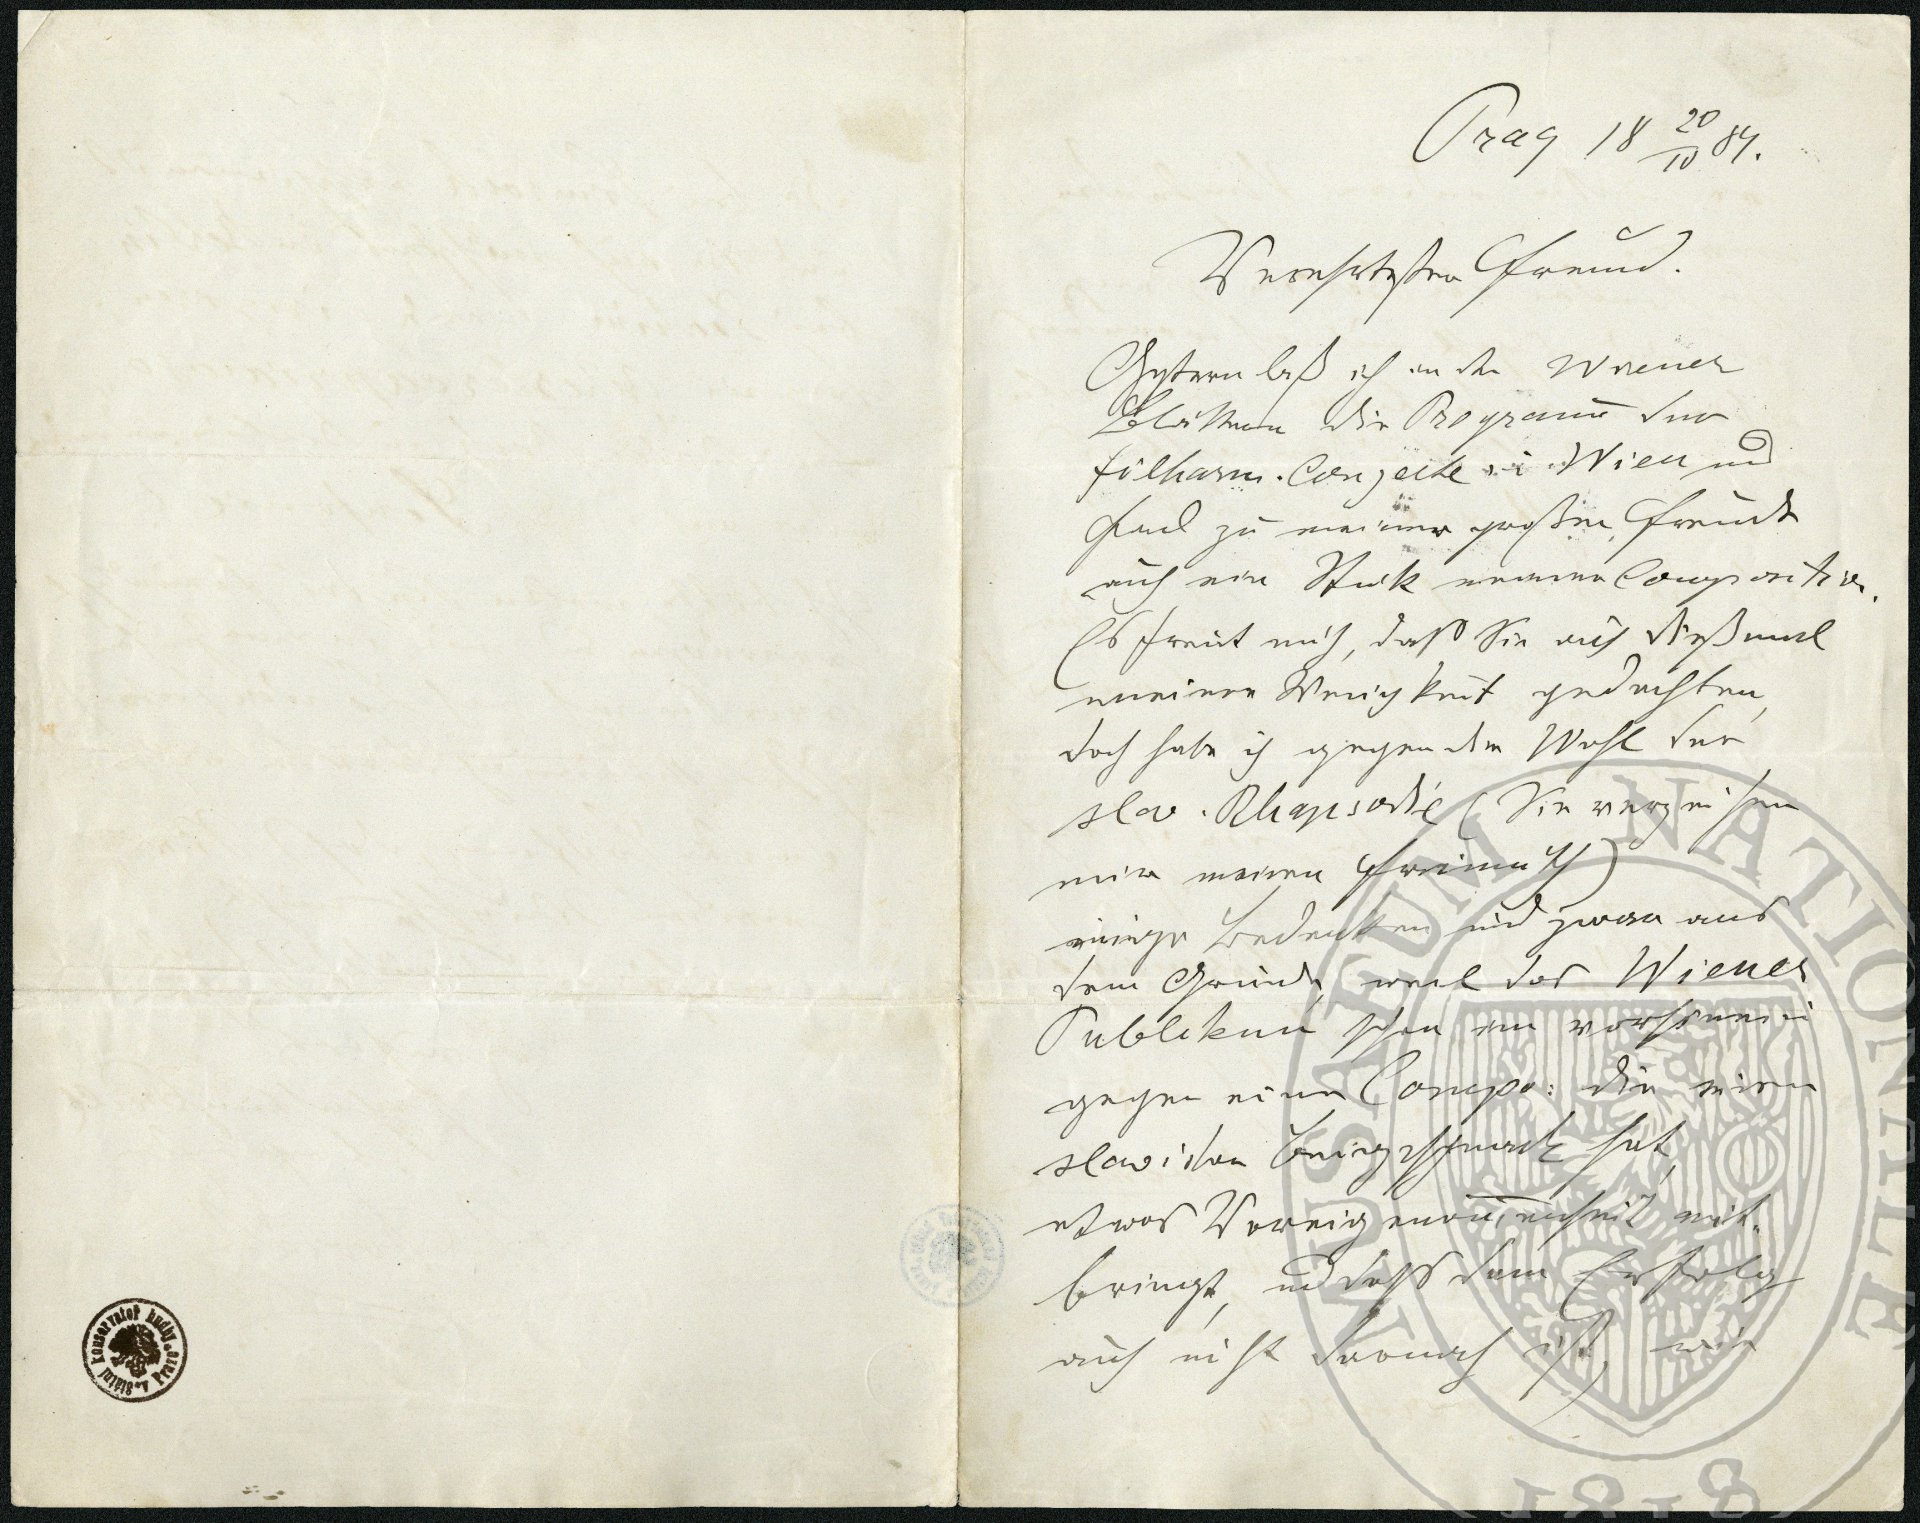 Prag 18 20/10 84.
Verehrtester Freund.
Gestern laß ich in den Wiener
Blättern die Programe der
filharm. Conzerte in Wien und
fand zu meiner großen Freude
auch ein Stück meiner Composition.
Es freut mich, daß Sie auch dießmal
meiner Wenigkeit gedachten,
doch habe ich gegen die Wahl der
slav. Rhapsodie (Sie verzeihen
mir meinen Freimuth)
einige Bedenken und zwar aus
dem Grunde, weil das Wiener
Publikum schon im vorhinein
gegen eine Compo: die einen
slavischen Beigeschmack hat,
etwas Voreingenomenheit mit-
bringt, und daß dem Erfolg
auch nicht darnach ist, wie
Státní konservatoř hudby v Praze
MUSAEUM NATIONALE
1818